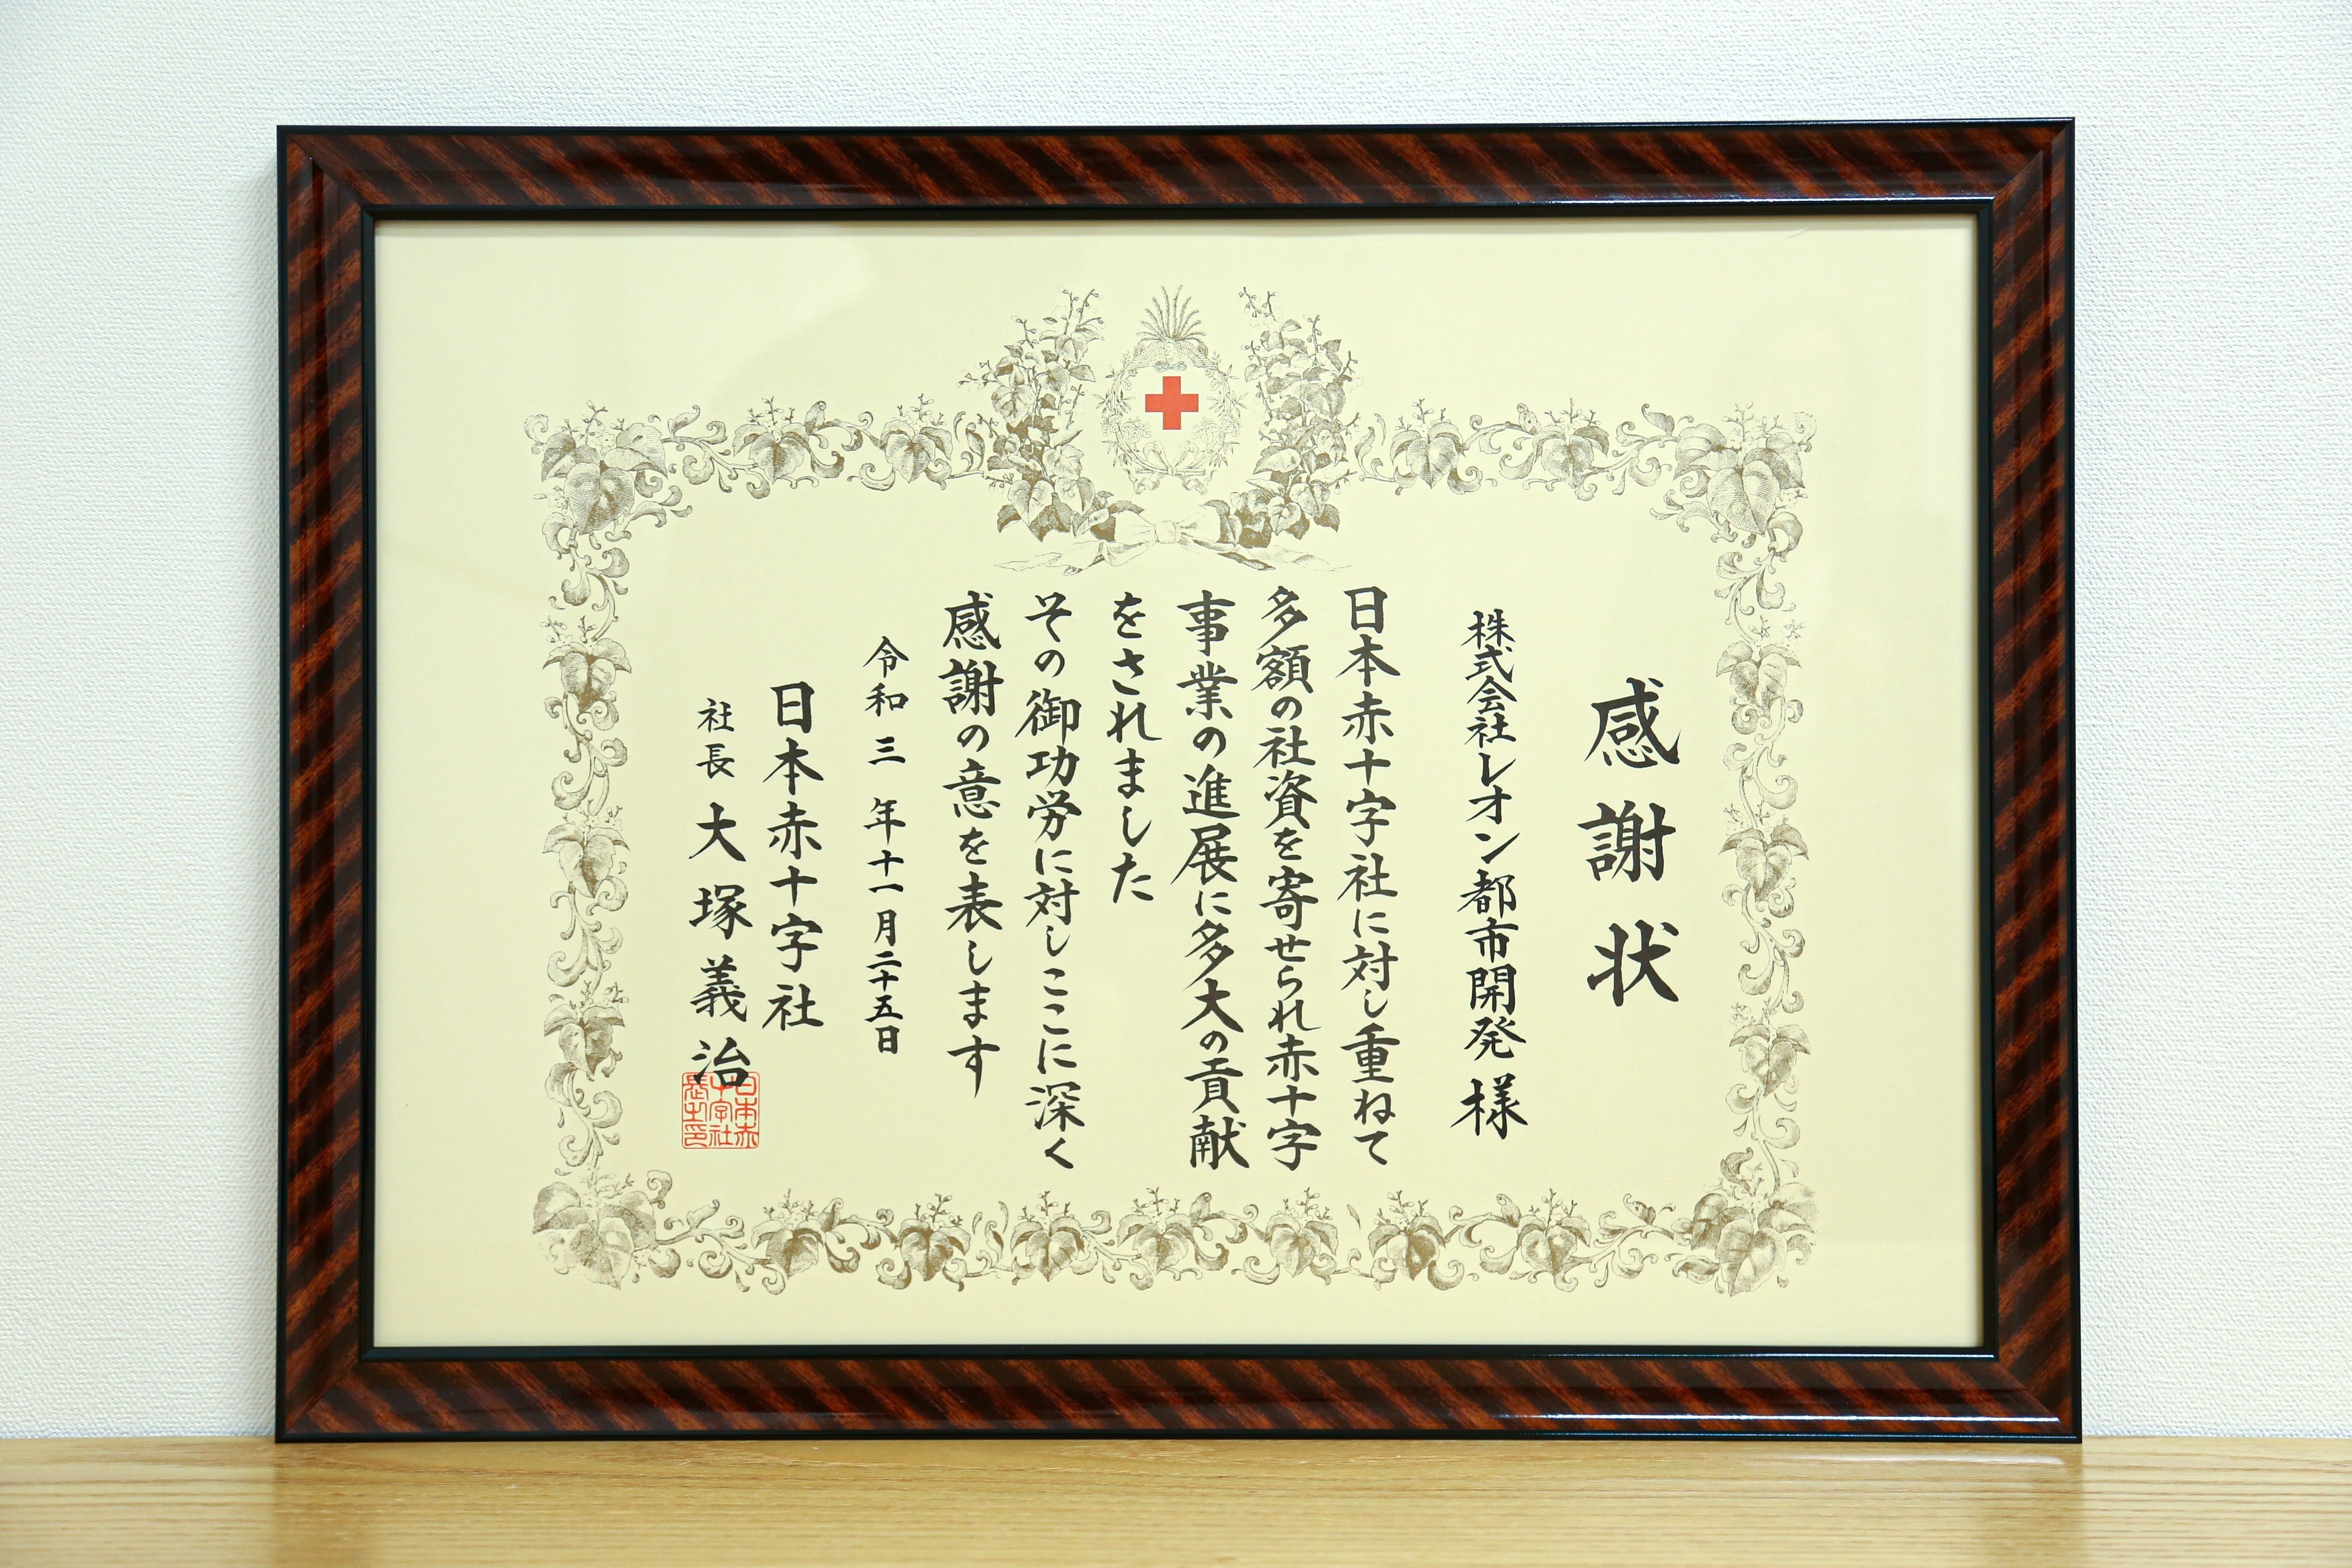 感謝状
株式会社レオン都市開発 様
日本赤十字社に対し重ねて
多額の社資を寄せられ赤十字
事業の進展に多大の貢献
をされました
その御功労に対しここに深く
感謝の意を表します
令和三年十一月二十五日
日本赤十字社
社長 大塚義治
日本赤
十字社
長之印